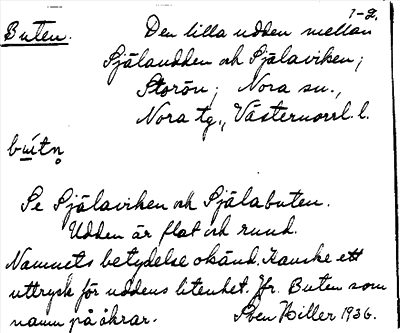 1-2.
Buten. Den lilla udden mellan
Själaudden och Själaviken;
Storön; Nora sn.,
Nora tg., Västernorrl. l.
bu̲tn̥
Se Själaviken och Själabuten.
Udden är flat och rund.
Namnets betydelse okänd. Kanske ett
uttryck för uddens litenhet. Jfr. Buten som
namn på åkrar. Sven Hiller 1936.